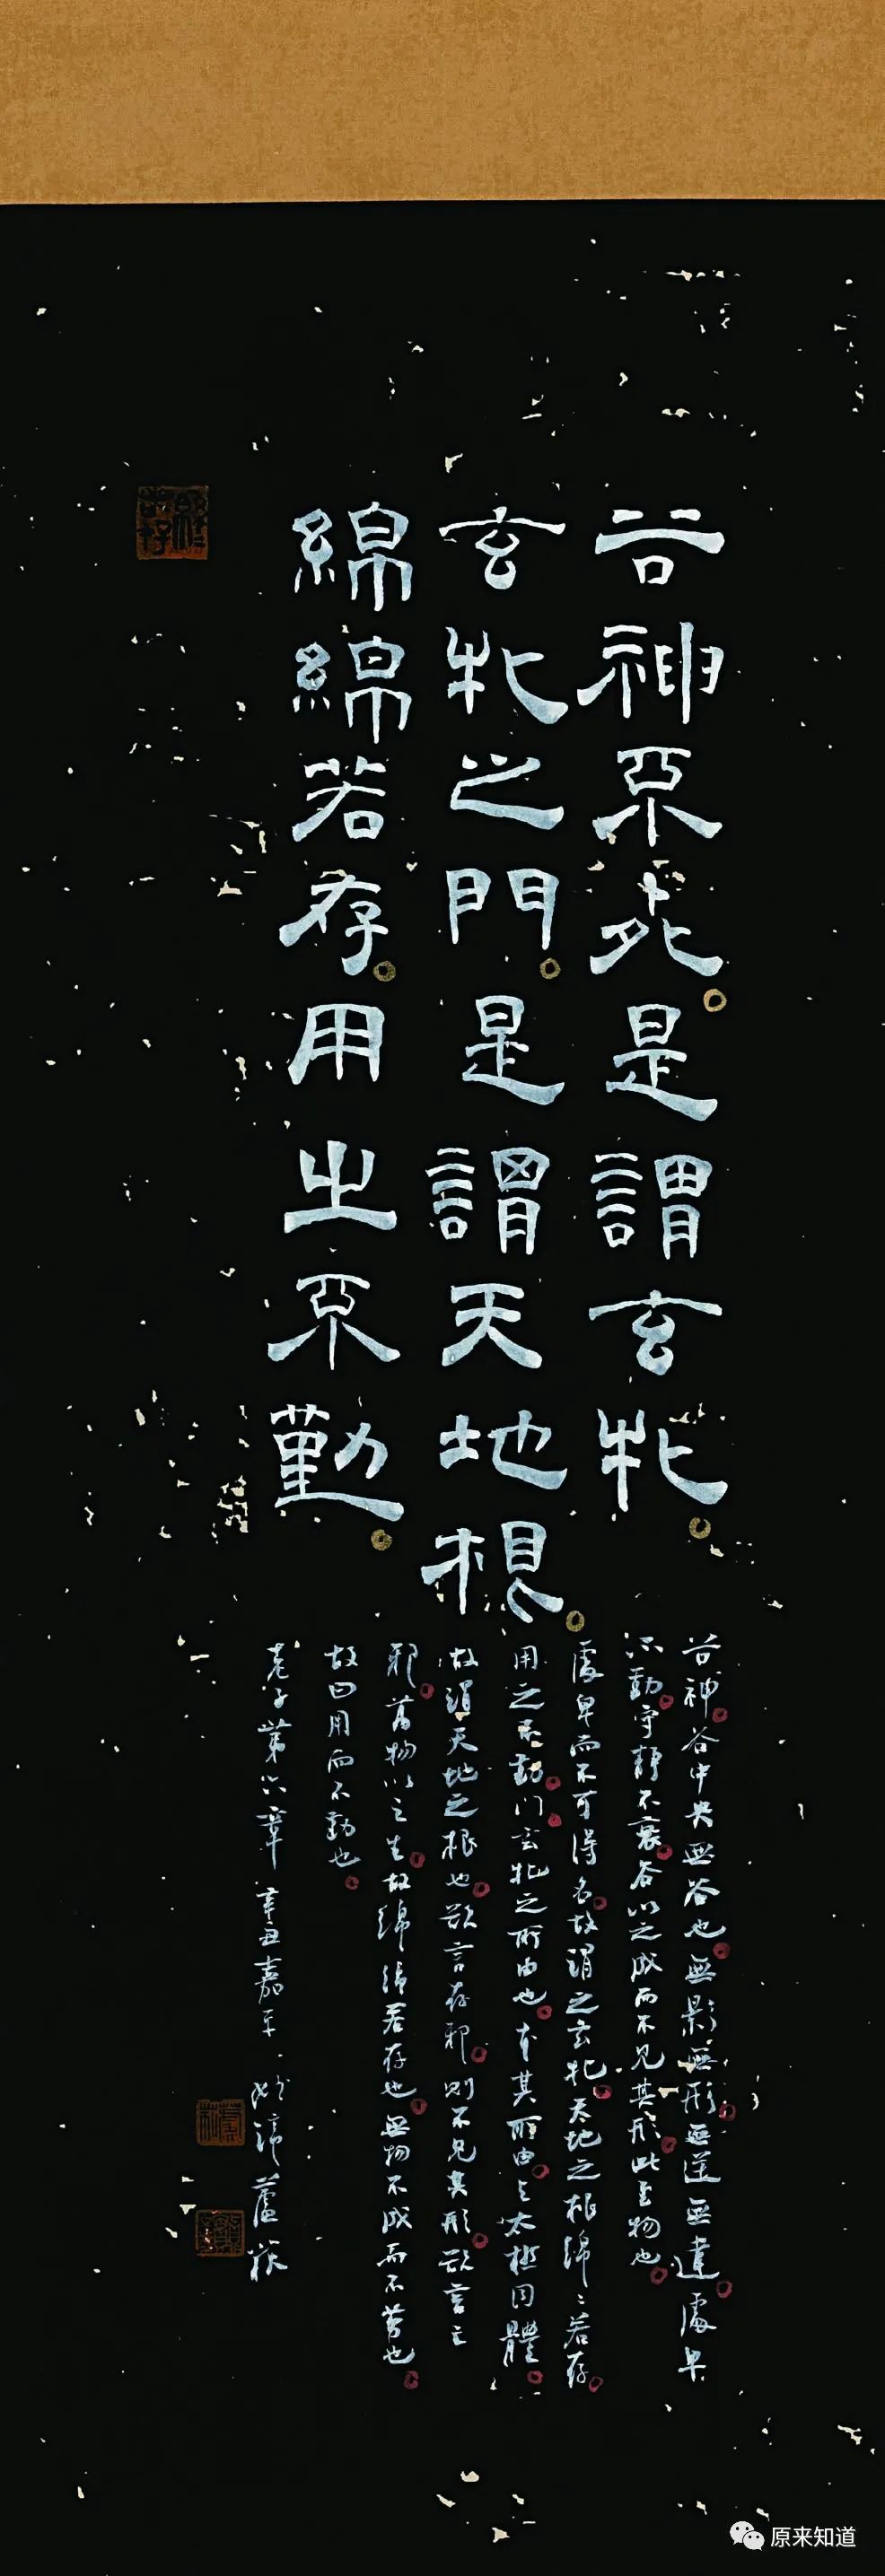 谷神不死。是謂玄牝。
玄牝之門。是謂天地根。
綿綿若存。用之不勤。
谷神。谷中央無谷也。無影無形。無逆無違。處卑
不動。守靜不衰。谷以之成而不見其形。此至物也。
處卑而不可得名。故謂之玄牝。天地之根綿〻若存。
用之不勤。門。玄牝之所由也。本其所由。与太極同體。
故謂天地之根也。欲言存邪。則不見其形。欲言亡
邪。萬物以之生。故綿綿若存也。無物不成而不勞也。
故曰用而不勤也。
老子第六章 辛丑嘉平
原来知道